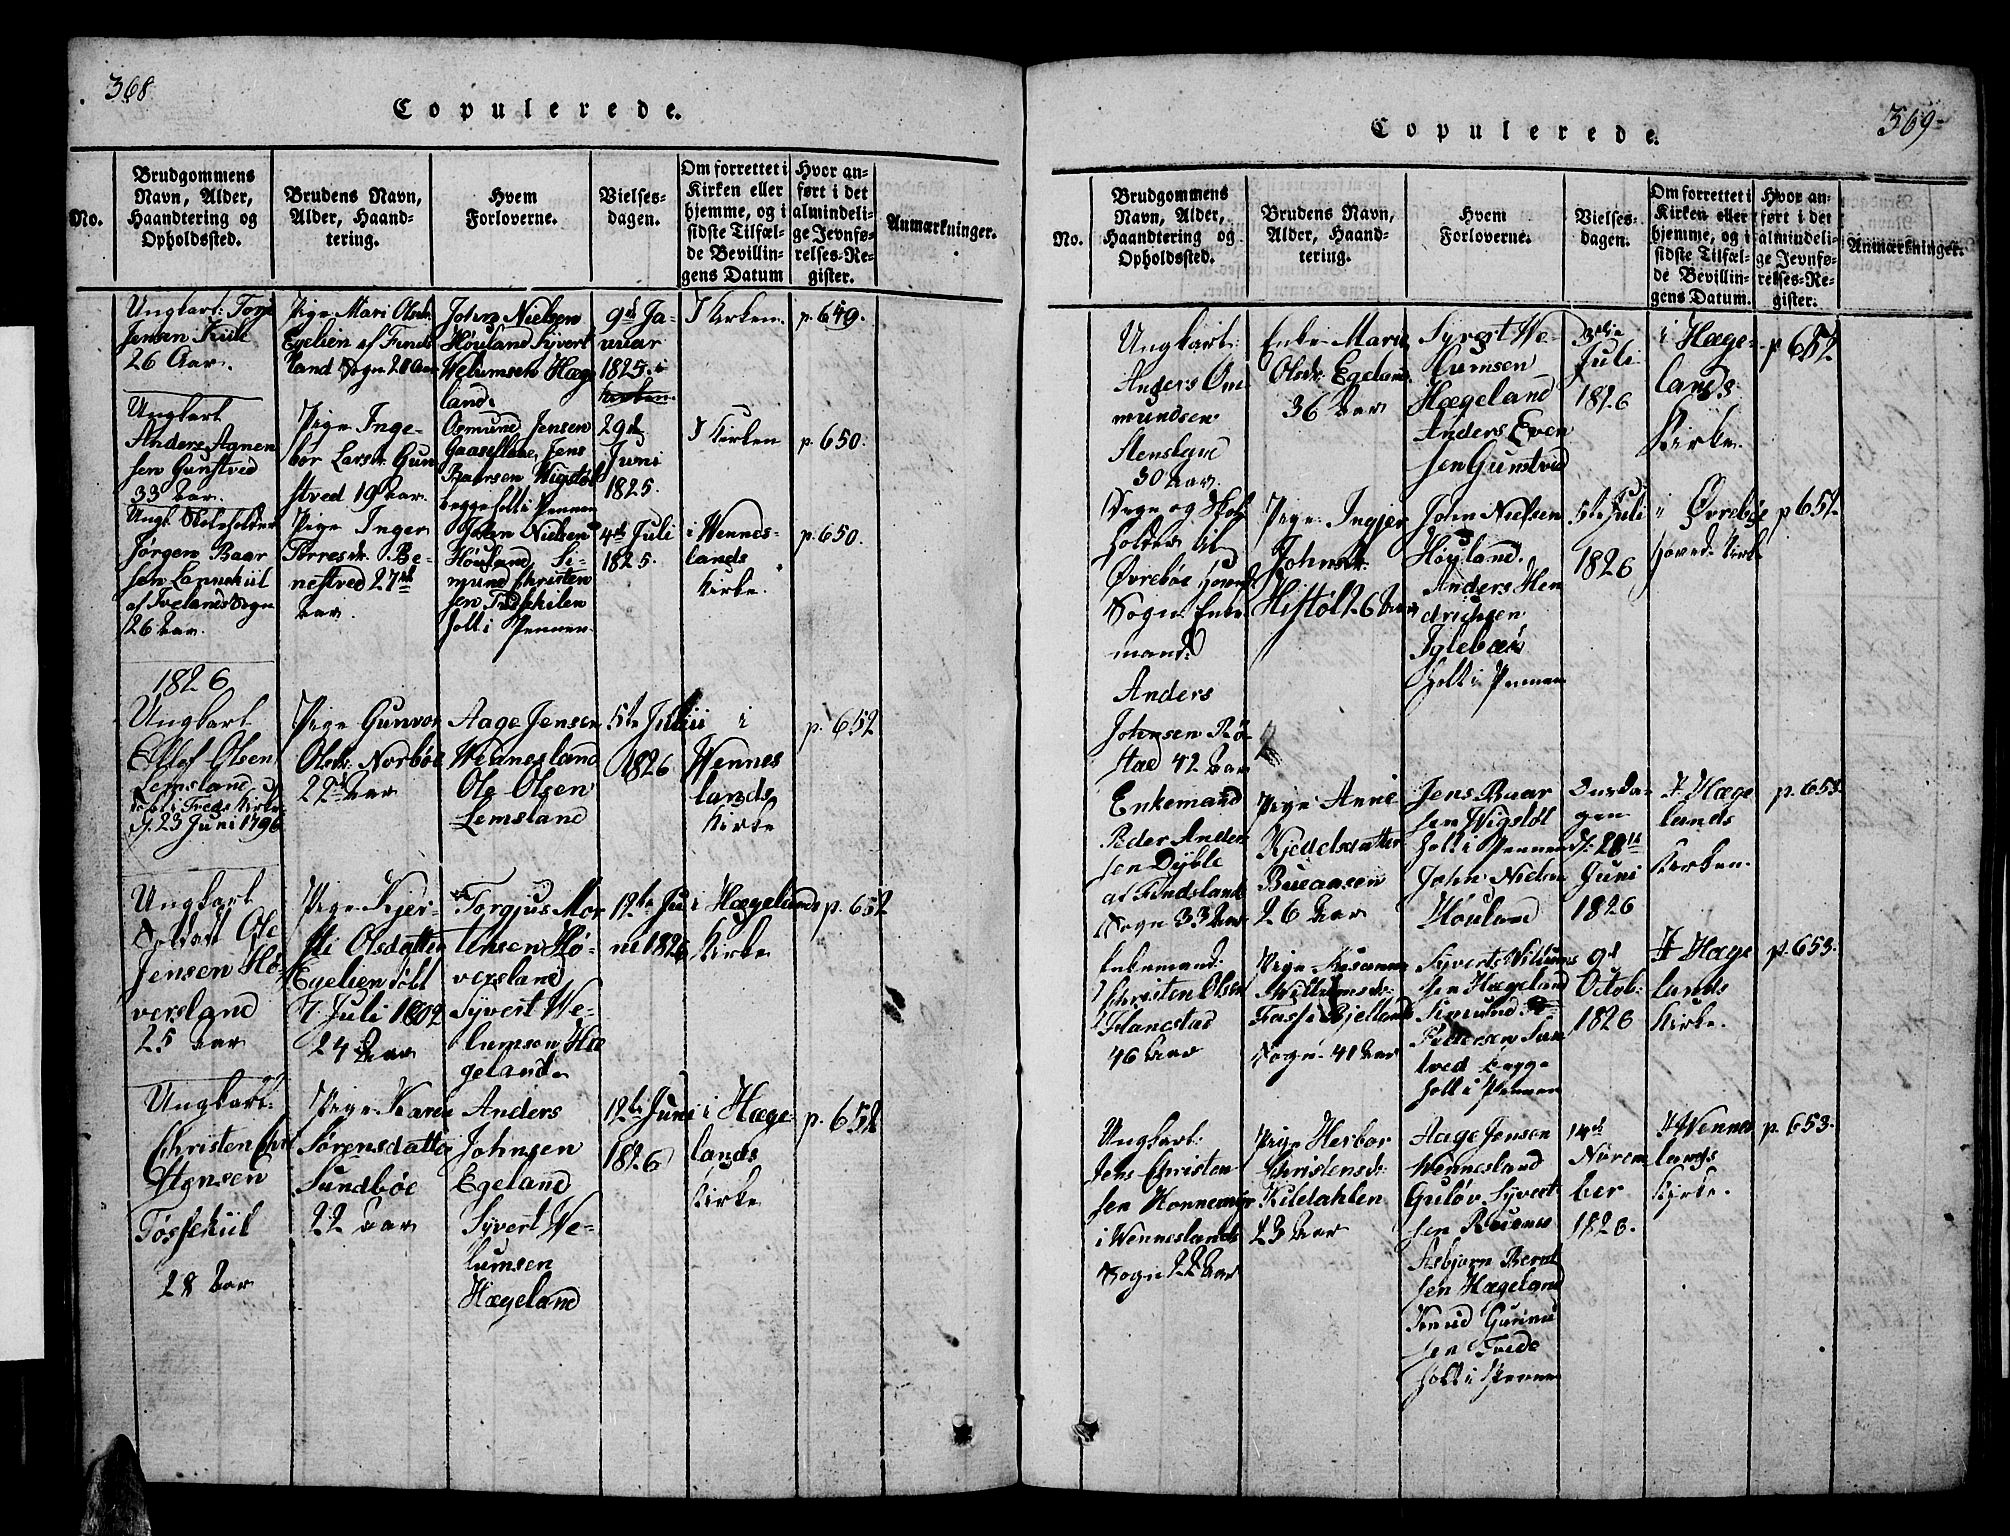 368
Copulerede.
No.
Brudgommens
Navn, Alder,
Haandtering og
Opholdssted.
Brudens Navn,
Alder, Haand-
tering.
Hvem
Forloverne.
Vielses-
dagen.
Om forrettet i
Kirken eller
hjemme, og i
sidste Tilfæl-
de Bevillin-
gens Datum
Hvor an-
ført i det
almindeli-
ge Jevnfø-
relses-Re-
gister.
Anmærkninger.
Ungkarl:
Jensen Kiil
26 Aar.
Pige Mari Olsdr.
Egelien af Finds
land Sogn 28 Aar
John Nielsen
Høuland Syvert
Welumsen Hæge
land.
9de Ja-
nuar
1825. i
Kirken
I Kirken.
p. 649.
Ungkarl
Anders Agnen
sen Gunstved
33 Aar.
Pige Inge-
bor Larsdr. Gun
stved 19 Aar.
Osmund Jensen
Gaaseflaae, Jens
Baarsen Wigstøl
begge holt i Pennen
29de
Juni
1825.
I Kirken
p. 650.
Ungk. Skoleholder
Jørgen Baar
sen
af Ivelands Sogn
26 Aar.
Pige Inger
Torresdr. Be-
nestved 27
Aar.
John Nielsen
Høuland, Si-
mund Christen
sen
holt i Pennen.
4de Juli
1825.
i Wennes-
lands
Kirke.
p. 650.
1826
Ungkarl
Ellef Olsen
Lemsland
23 Juni 1796
Pige Gunvor
Olsdr. Norbøe
22 Aar
Aage Jensen
Wennesland
Ole Olsen
Lemsland
5te Julii
1826
i
Wennes
lands
Kirke
p. 652
Ungkarl
Soldat Ole
Jensen Hø-
versland
25 Aar
Pige Kjer-
sti Olsdatter
Egelien døbt
7. Juli 1802
24 Aar
Torgjus Mor
tensen Hø-
versland
Syvert We-
lumsen Hæ
geland.
12te Ju-
ni 1826
i Hægelands
Kirke
p. 652
Ungkarl:
Christen Chri
stensen
Tøssekiil
28 Aar
Pige Karen
Sørensdatter
Sundbøe
22 Aar
Anders
Johnsen
Egeland
Syvert We-
lumsen
Hægeland
12te Juni
1826
i Hæge-
lands
Kirke
p. 652
369
Copulerede.
No.
Brudgommens
Navn, Alder,
Haandtering og
Opholdssted.
Brudens Navn,
Alder, Haand-
tering.
Hvem
Forloverne.
Vielses-
dagen.
Om forrettet i
Kirken eller
hjemme, og i
sidste Tilfæl-
de Bevillin-
gens Datum.
Hvor an-
ført i det
almindeli-
ge Jevnfø-
relses-Re-
gister.
Anmærkninger.
Ungkarl:
Anders Om
mundsen
Stensland
30 Aar.
Enke Marie
Olsdr. Egeland
36 Aar
Syvert We-
lumsen
Hægeland
Anders Even
sen Gunstved
3die
Juli
1826
i Hæge-
lands
Kirke.
p 652
holder til
Øvrebøe Hoved
Sogn Enke
mand
Anders
Johnsen Rø-
stad 42 Aar
Pige Ingjer
Johnsdr.
Histøl 26 Aar
John Nielsen
Høyland.
Anders Hen
drichsen
Iglebæk
holt i Pennen
5te Juli
1826
i Øvrebøe
Hoved Kirke
p 652
Enkemand
Peder Ander
sen Dyble
af Findsland
Sogn 33 Aar
Pige Anne
Kjeddelsdatter
Bueaasen
26 Aar
Jens Baar
sen Wigstøl
holt i Pennen
John Nielsen
Høuland
Onsda-
gen
d. 28de
Juni
1826
I Hæge
lands
Kirken.
p. 653.
Enkemand:
Christen Olsen
46 Aar
Pige Susanne
Willumsdr.
Sogn 41 Aar
Syvert Willums
sen Hægeland
Simund
Pedersen
begge
holt i Pennen
9de
Octob:
1826
I Hæge
lands
Kirke.
p. 653.
Ungkarl:
Jens Christen
sen Honnemyr
i Wenneslands
Sogn 22 Aar
Pige Herbor
Christensdr.
Kiledahlen
23 Aar
Aage Jensen
Wennesland
Guløv Syvert
sen
Asbjørn Bernt
sen Hægeland
Knud Gunnu
sen Tvede
holt i Pennen
14de
Novem
ber
1826.
I Wennes
lands
Kirke.
p. 653.